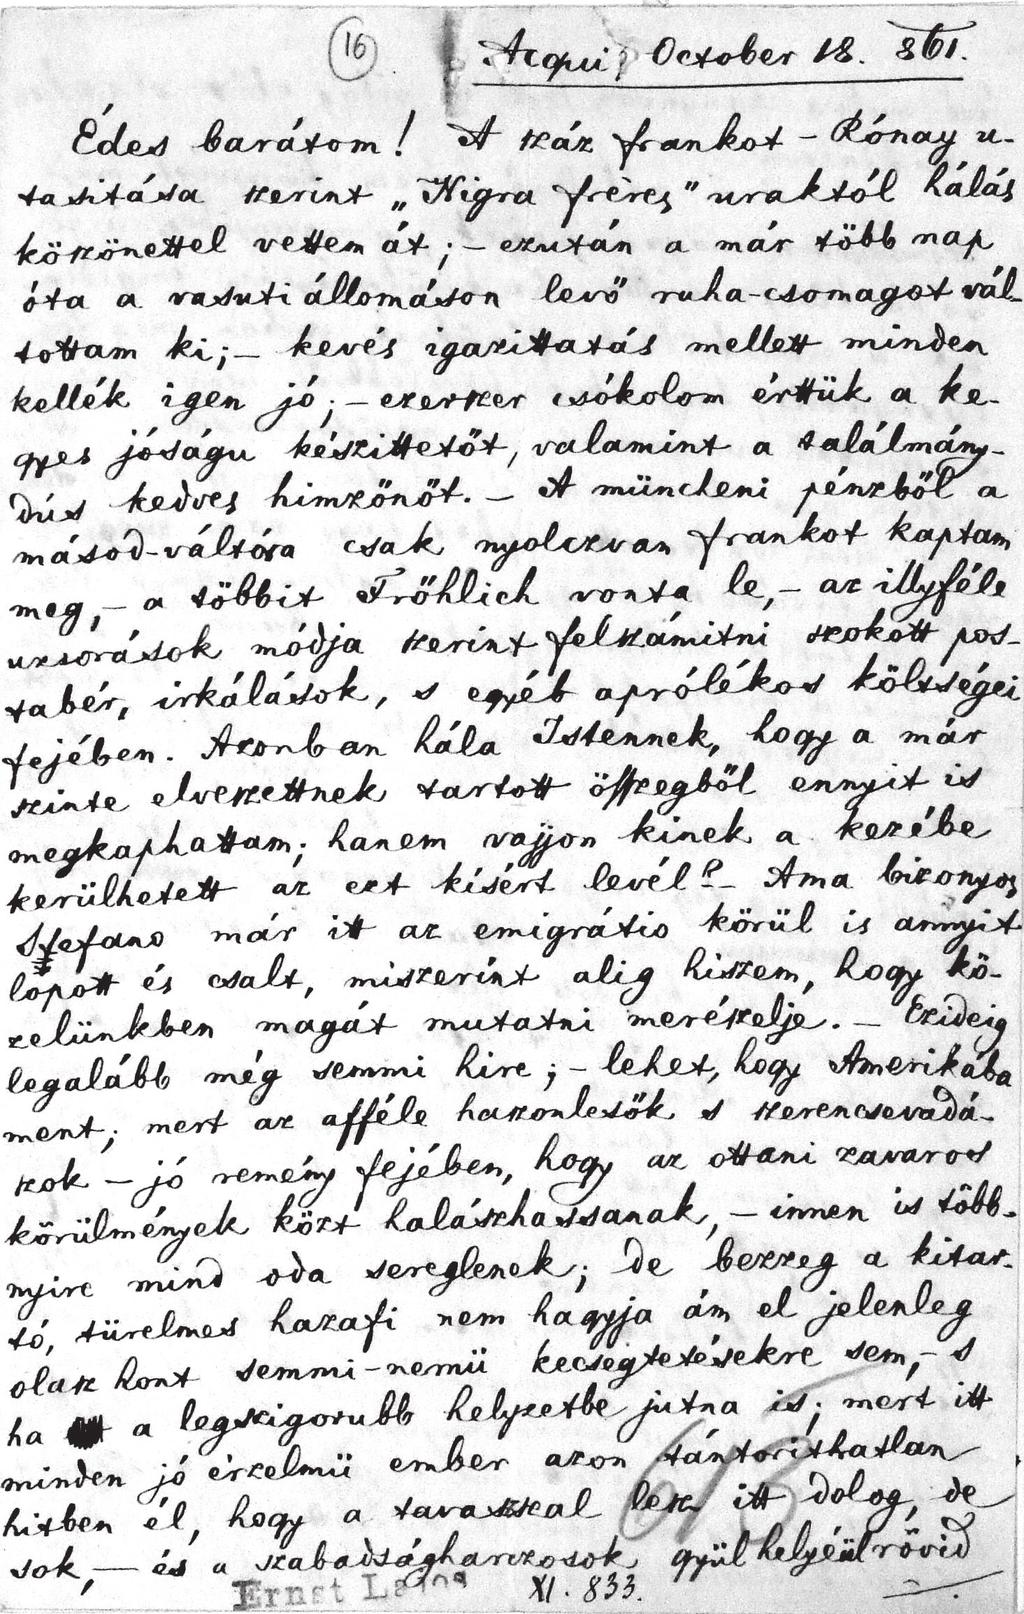 16
Acqui, October 18. 861.
Édes barátom! A száz frankot – Rónay u-
tasitása szerint „Nigra frères" uraktól hálás
köszönettel vettem át; – ezután a már több nap
óta a vasuti állomáson levő ruha-csomagot vál-
tottam ki; – kevés igazittatás mellett minden
kellék igen jó; – ezerszer csókolom érttük a ke-
gyes jóságu készittetőt, valamint a találmány-
dús kedves himzőnőt. – A müncheni pénzből a
másod-váltóra csak nyolczvan frankot kaptam
meg, – a többit Fröhlich vonta le, – az illyféle
uzsorások módja szerint felszámitni szokott pos-
tabér, irkálások, s egyéb aprólékos költségei
fejében. Azonban hála Istennek, hogy a már
szinte elveszettnek tartott összegből ennyit is
megkaphattam; hanem vajjon kinek a kezébe
kerülhetett az ezt kisért levél? – Ama bizonyos
Stefano már itt az emigrátio körül is annyit
lopott és csalt, miszerint alig hiszem, hogy kö-
zelünkben magát mutatni merészelje. – Ezideig
legalább még semmi hire; – lehet, hogy Amerikába
ment; mert az afféle haszonlesők s szerencsevadá-
szok – jó remény fejében, hogy az ottani zavaros
körülmények közt halászhassanak, – innen is több-
nyire mind oda sereglenek; de bezzeg a kitar-
tó, türelmes hazafi nem hagyja ám el jelenleg
olasz hont semmi-nemü kecsegtetésekre sem, – s
ha a legszigorubb helyzetbe jutna is; mert itt
minden jó érzelmü ember azon tántorithatlan
hitben él, hogy a tavaszszal lesz itt dolog, de
sok, – és a szabadságharczosok gyülhelyéül rövid
Ernst Lajos XI. 833.